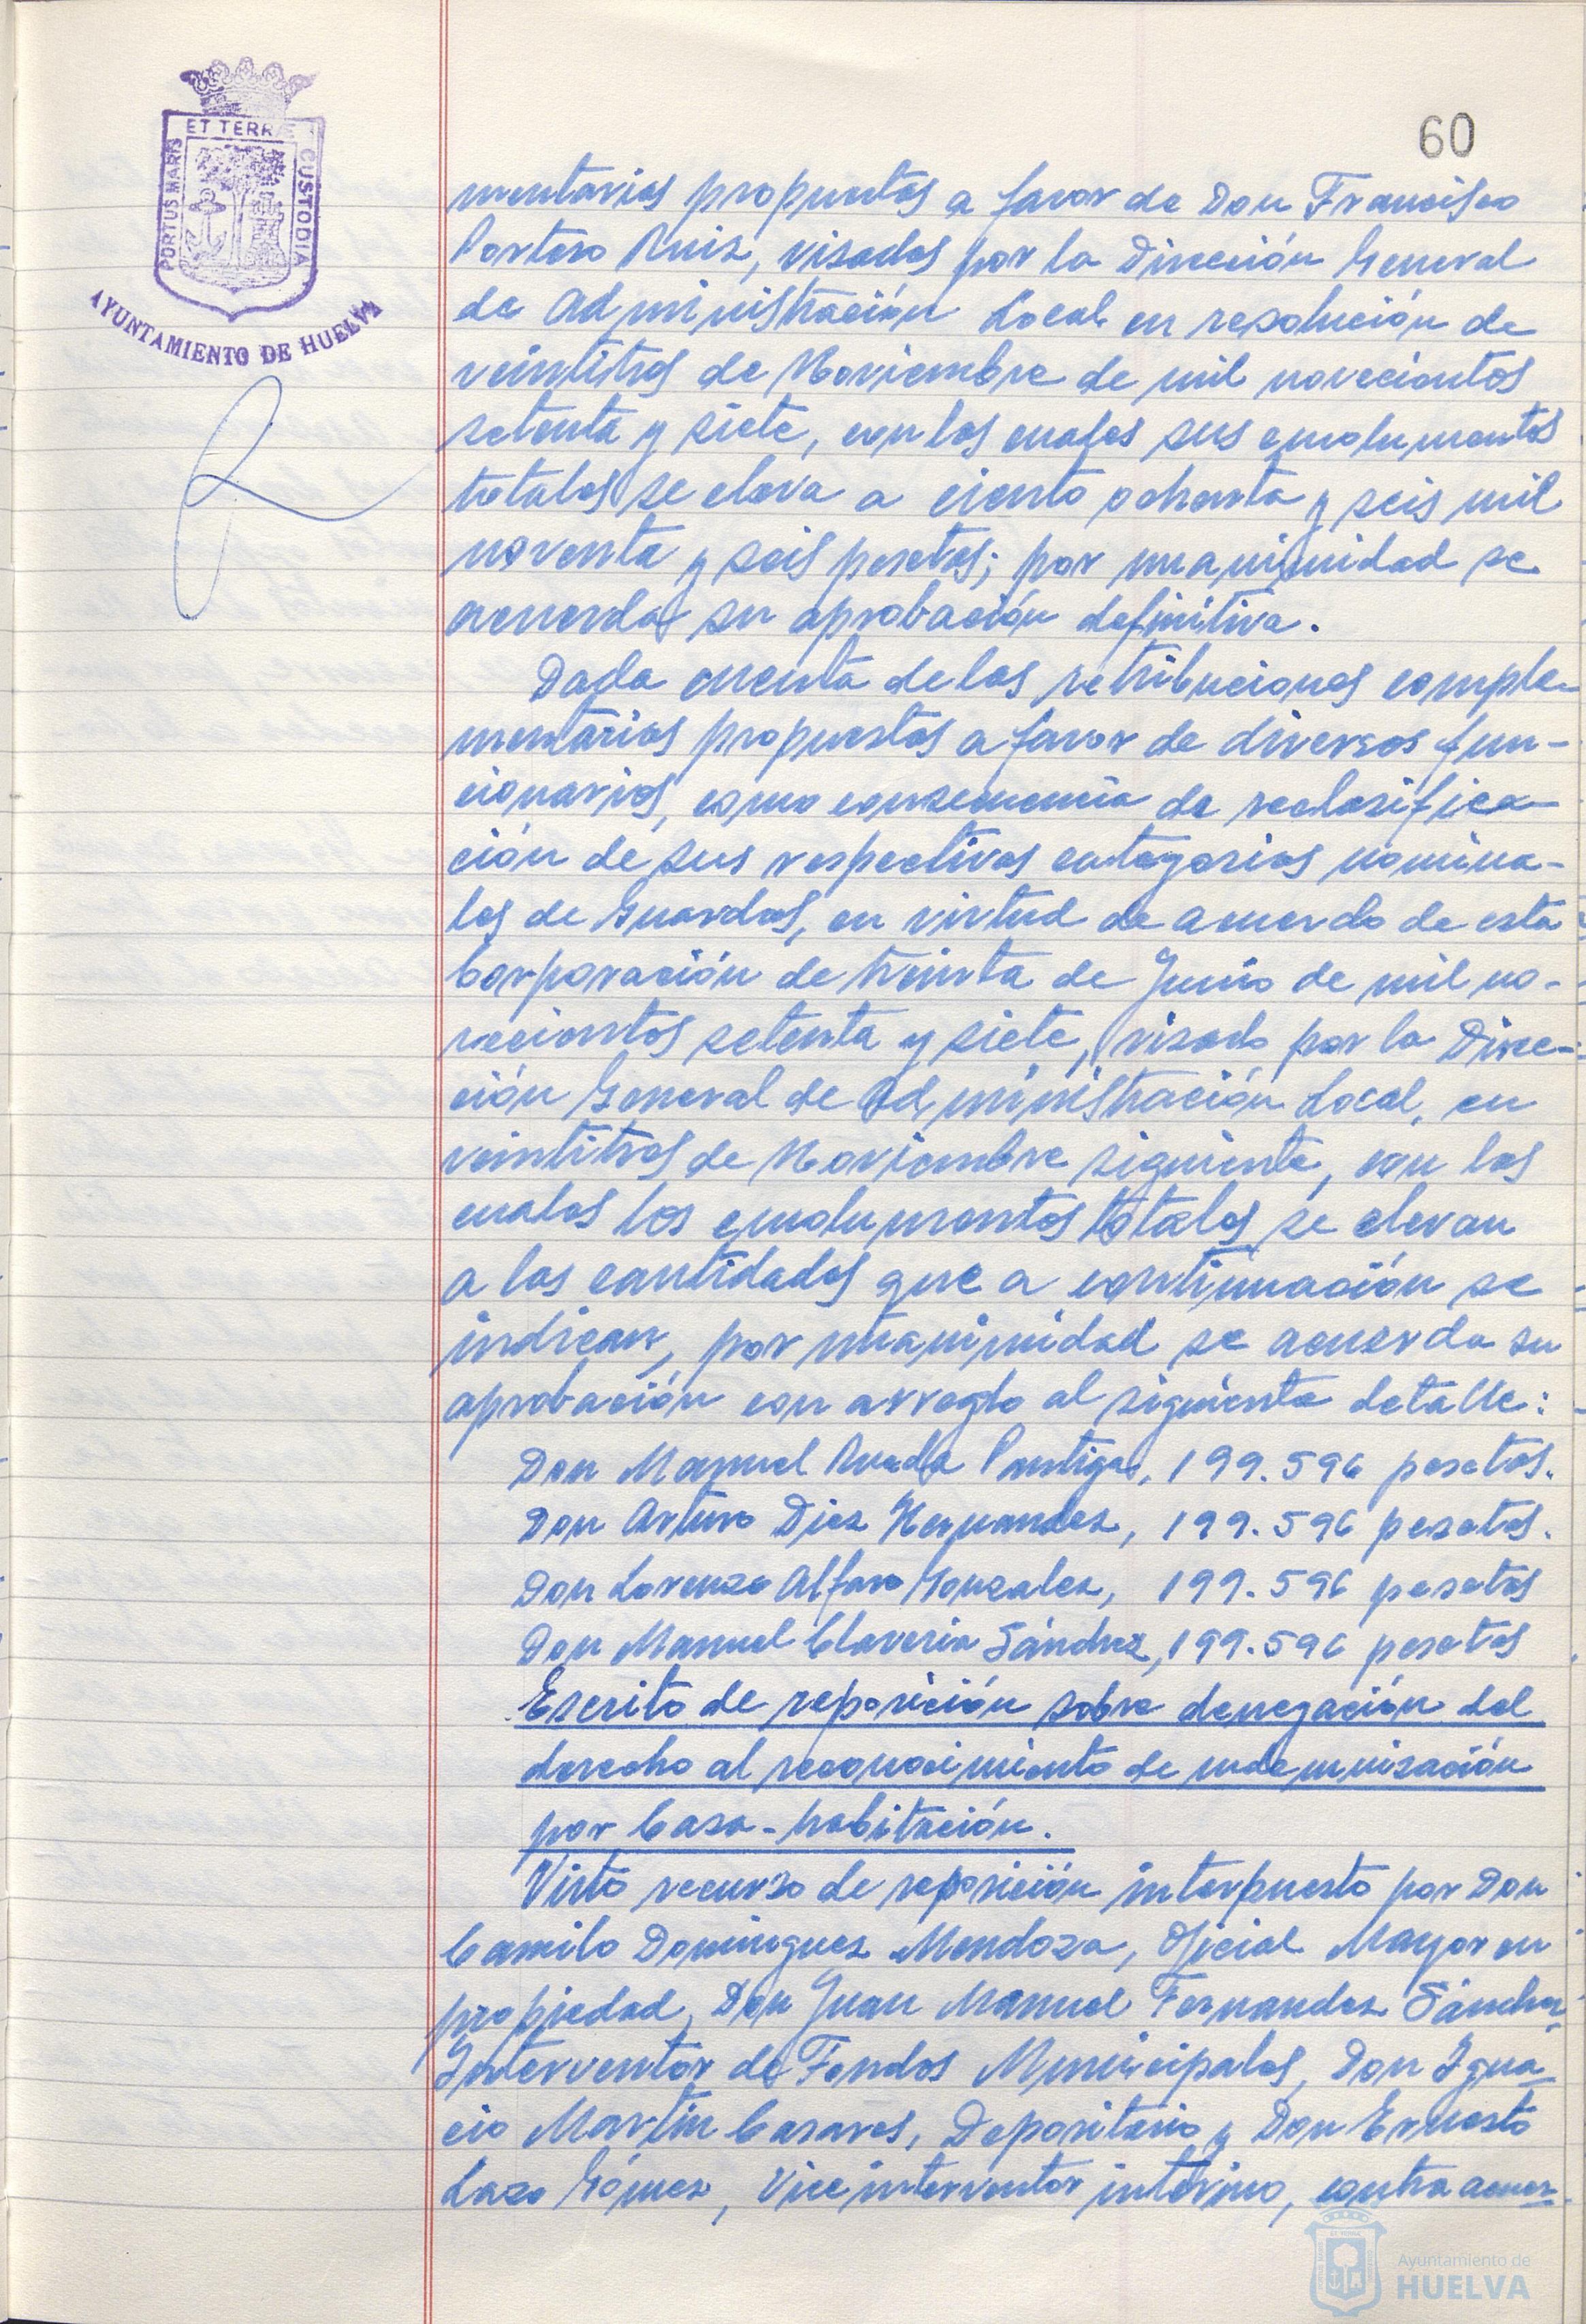 ET TERRÆ
PORTUS MARIS
CUSTODIA
AYUNTAMIENTO DE HUELVA
60
mentarias propuestas a favor de Don Francisco
Portero Ruiz, visadas por la Dirección General
de Administración Local en resolución de
veintitres de Noviembre de mil novecientos
setenta y siete, con las cuales sus emolumentos
totales se eleva a ciento ochenta y seis mil
noventa y seis pesetas; por unanimidad se
acuerda su aprobación definitiva.
Dada cuenta de las retribuciones comple-
mentarias propuestas a favor de diversos fun-
cionarios, como consecuencia de reclasifica-
ción de sus respectivas categorias nomina-
les de Guardas, en virtud de acuerdo de esta
Corporación de treinta de Junio de mil no-
vecientos setenta y siete, visado por la Direc-
ción General de Administración Local, en
veintitres de Noviembre siguiente, con las
cuales los emolumentos totales se elevan
a las cantidades que a continuación se
indican, por unanimidad se acuerda su
aprobación con arreglo al siguiente detalle:
Don Manuel Rueda Pantiga, 199.596 pesetas.
Don Arturo Diez Hernandez, 199.596 pesetas.
Don Lorenzo Alfaro Gonzalez, 199.596 pesetas
Don Manuel Claveria Sánchez, 199.596 pesetas
Escrito de reposición sobre denegación del
derecho al reconocimiento de indemnización
por Casa-habitación.
Visto recurso de reposición interpuesto por Don
Camilo Dominguez Mendoza, Oficial Mayor en
propiedad, Don Juan Manuel Fernandez Sánchez
Interventor de Fondos Municipales, Don Igna-
cio Martin Casares, Depositario y Don Ernesto
Lazo Gómez, Viceinterventor interino, contra acuer-
Ayuntamiento de
HUELVA